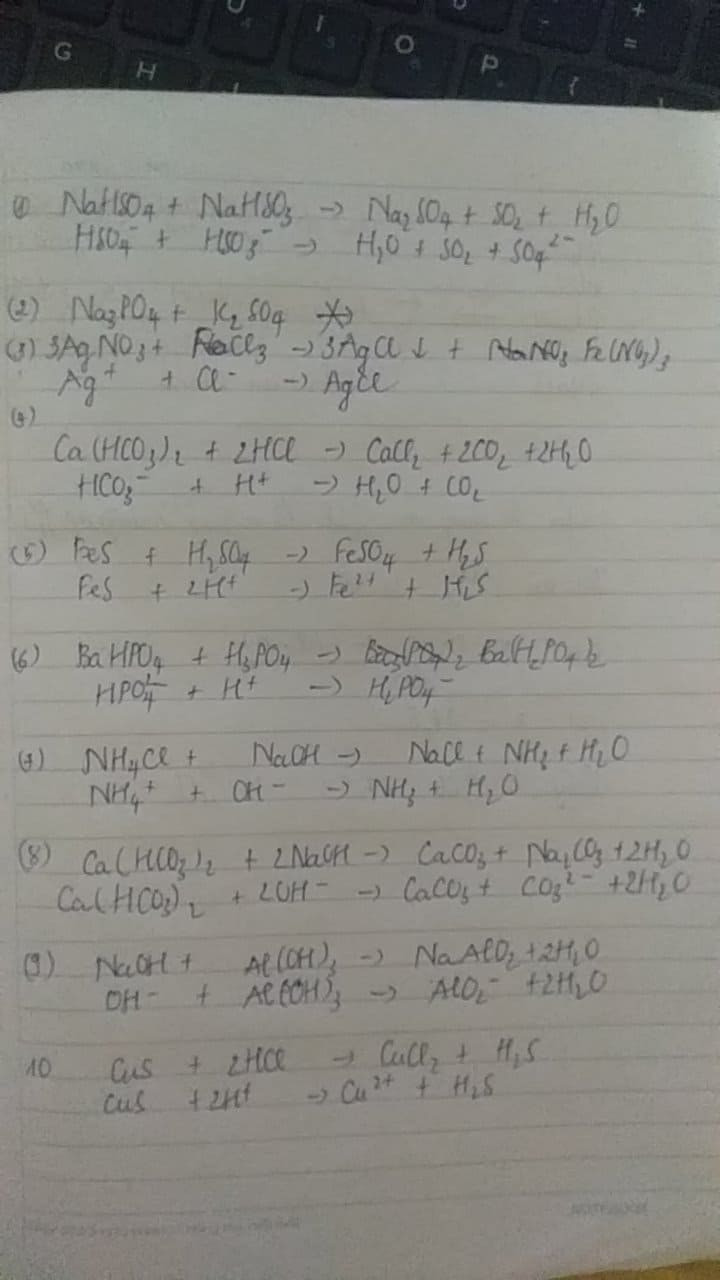 G H O P { + =
(1) NaHSO₄ + NaHSO₃ → Na₂SO₄ + SO₂ + H₂O
HSO₄⁻ + HSO₃⁻ → H₂O + SO₂ + SO₄²⁻
(2) Na₃PO₄ + K₂SO₄ ↛
(3) 3AgNO₃ + FeCl₃ → 3AgCl ↓ + Fe(NO₃)₃
Ag⁺ + Cl⁻ → AgCl
(4)
Ca(HCO₃)₂ + 2HCl → CaCl₂ + 2CO₂ + 2H₂O
HCO₃⁻ + H⁺ → H₂O + CO₂
(5) FeS + H₂SO₄ → FeSO₄ + H₂S
FeS + 2H⁺ → Fe²⁺ + H₂S
(6) BaHPO₄ + H₃PO₄ → Ba(H₂PO₄)₂
HPO₄²⁻ + H⁺ → H₂PO₄⁻
(7) NH₄Cl + NaOH → NaCl + NH₃ + H₂O
NH₄⁺ + OH⁻ → NH₃ + H₂O
(8) Ca(HCO₃)₂ + 2NaOH → CaCO₃ + Na₂CO₃ + 2H₂O
Ca(HCO₃)₂ + 2OH⁻ → CaCO₃ + CO₃²⁻ + 2H₂O
(9) NaOH + Al(OH)₃ → NaAlO₂ + 2H₂O
OH⁻ + Al(OH)₃ → AlO₂⁻ + 2H₂O
10 CuS + 2HCl → CuCl₂ + H₂S
CuS + 2H⁺ → Cu²⁺ + H₂S